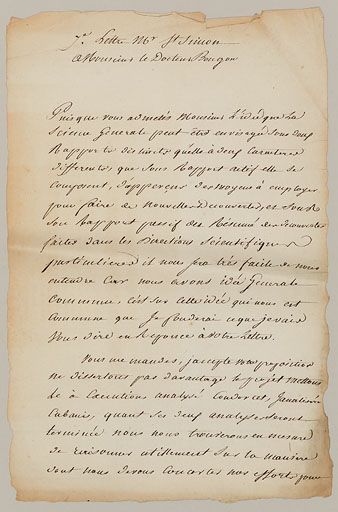 7.e Lettre Mr. St Simon
a Monsieur le Docteur Bougon
Puisque vous admetés Monsieur l'idée que La
Science Generale peut être envisagé Sous deux
Rapports distincts qu'elle à deux Caracteres
differents, que Sous Rapport actif elle se
Compose, d'apperçus des moyens à employer
pour faire de Nouvelles découvertes, et Sous
Son Rapport passif des Résumé des découvertes
faites dans les Directions Scientifiques
particulieres il nous sera très facile de nous
entendre Car nous avons idée Generale
Commune, C'est Sur Cette idée qui nous est
Commune que Je fonderai ce que je vais
Vous dire en Réponce à votre Lettre.
Vous me mandes, j'accepte votre proposition
ne dissertons pas davantage le projet mettons
le à Execution analysé Condorcet, J'analiserai
Cabanis, quand Ses deux analyses Seront
terminée nous nous trouverons en mesure
de raisonner utilement Sur la maniere
dont nous devons Concerter nos efforts pour